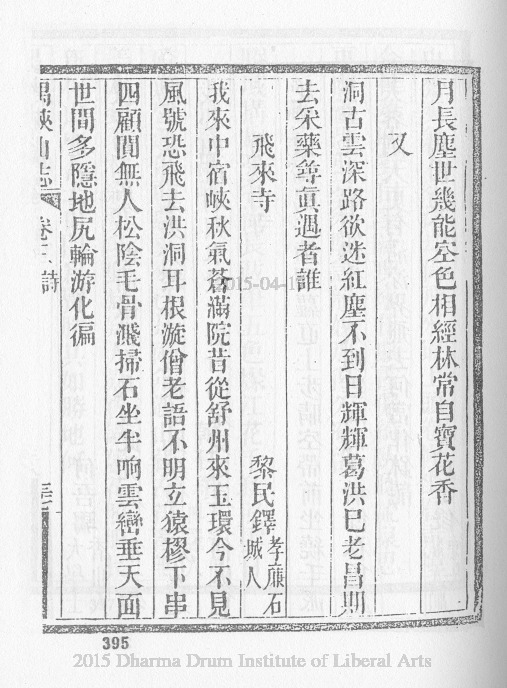 月長塵世幾能空色相經林常自寶花香
又
洞古雲深路欲迷紅塵不到日輝輝葛洪巳老昌期
去采藥尋眞遇者誰
飛來寺 黎民鐸 孝廉石城人
我來中宿峽秋氣蒼滿院昔從舒州來玉環今不見
風號恐飛去洪洞耳根漩僧老語不明立猿樛下串
四顧闃無人松陰毛骨濺掃石坐半晌雲巒垂天面
世間多隱地尻輪游化徧
禺峽山志 卷 詩
395
2015-04-1
2015 Dharma Drum Institute of Liberal Arts